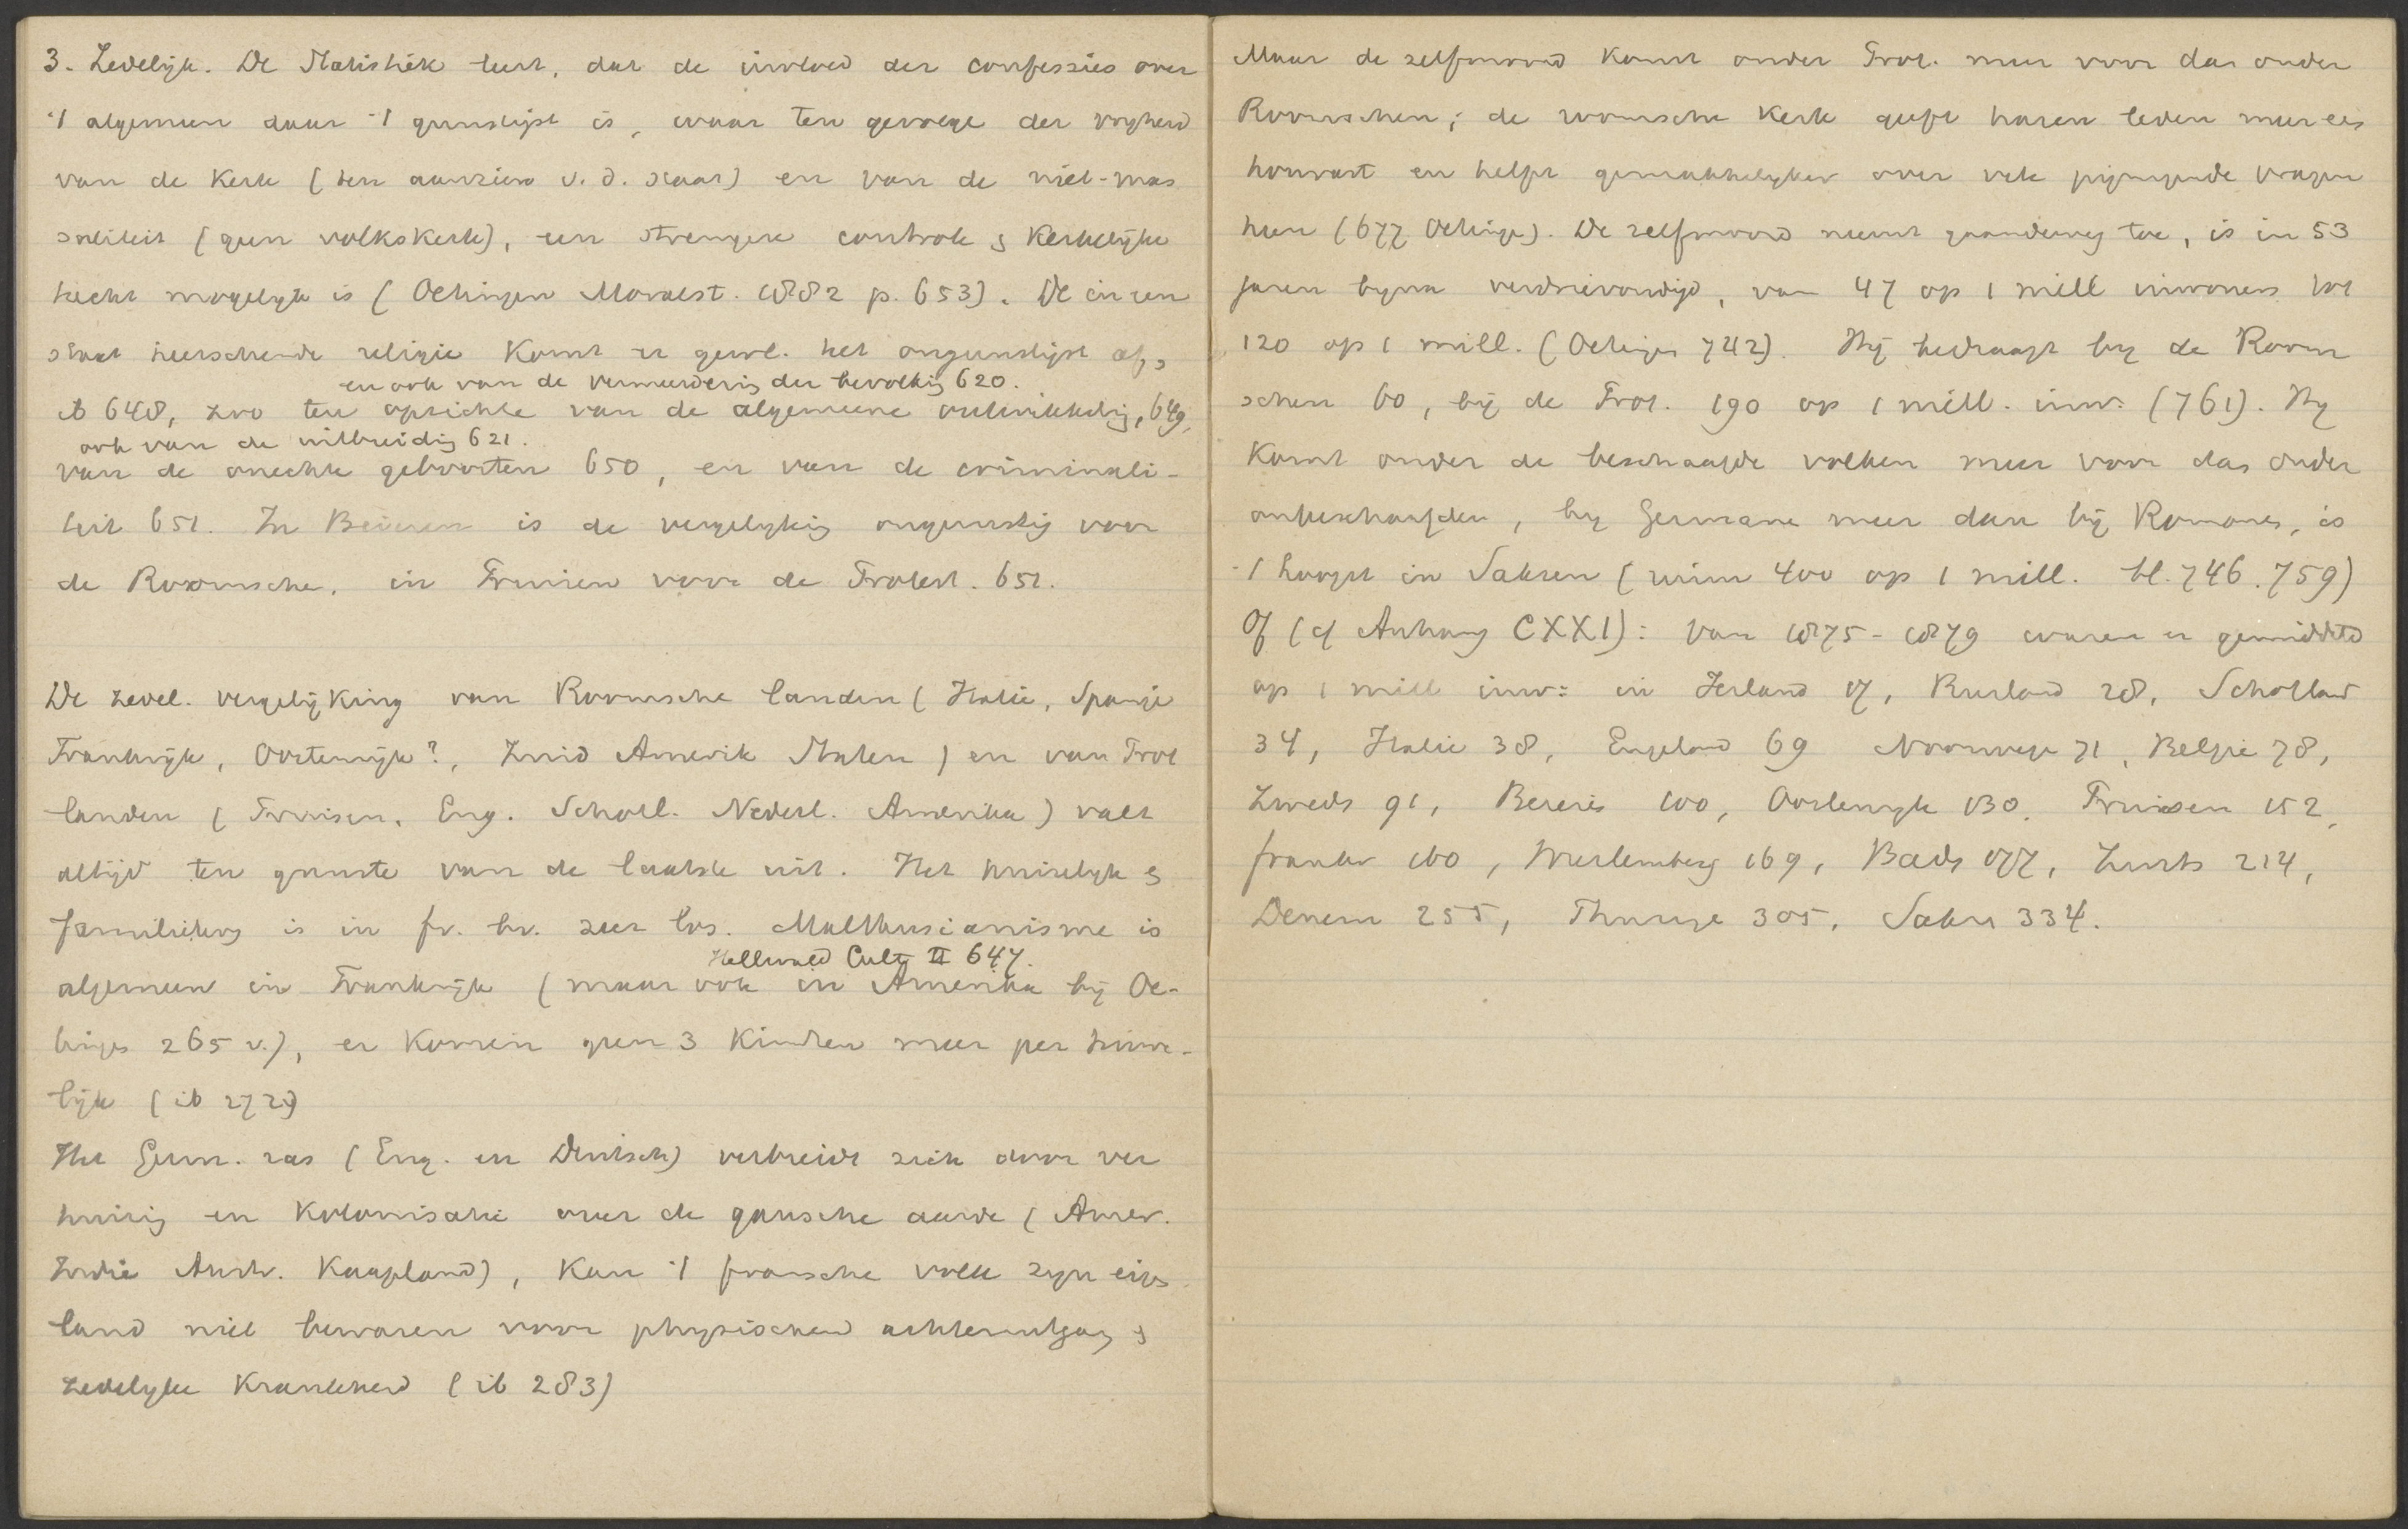 3. Zedelijk. De Statistiek leert, dat de invloed der confessies over
't algemeen daar 't gunstigst is, waar ten gevolge der vrijheid
van de Kerk (ten aanzien v. d. staat) en van de niet-mas
saliteit (geen volkskerk), een strengere controle & Kerkelijke
tucht mogelyk is (Oettingen Moralst. 1882 p. 653). De in een
staat heerschende religie Komt er gewl. het ongunstigst af,
en ook van de vermeerdering der bevolking 620.
ib 648, zoo ten opzichte van de algemeene ontwikkeling, 649,
ook van de uitbreiding 621.
van de onechte geboorten 650, en van de criminali-
teit 651. In Beieren is de vergelyking ongunstig voor
de Roomsche, in Pruisen voor de Protest. 651.
De zedel. vergelijking van Roomsche landen (Italie, Spanje
Frankrijk, Oostenrijk?, Zuid Amerik Staten) en van Prot
landen (Pruisen, Eng. Schotl. Nederl. Amerika) valt
altijd ten gunste van de laatste uit. Het huiselyk &
familieleven is in fr. bv. zeer los. Malthusianisme is
Hellwald Cult II 647.
algemeen in Frankrijk (maar ook in Amerika bij Oe-
tingen 265 v.), er Komen geen 3 Kinderen meer per huwe-
lijk (ib 272)
Het Germ. ras (Eng. en Duitsch) verbreidt zich door ver
huizing en Kolonisatie over de gansche aarde (Amer.
Indie Austr. Kaapland), Kan 't fransche volk zyn eigen
land niet bewaren voor physischen achteruitgang &
zedelyke Krankheid (ib 283)
Maar de zelfmoord Komt onder Prot. meer voor dan onder
Roomschen; de roomsche Kerk geeft haren leden meer een
houvast en helpt gemakkelyker over vele pijnigende vragen
heen (677 Oettingen). De zelfmoord neemt gaandeweg toe, is in 53
jaren byna verdrievoudigd, van 47 op 1 mill inwoners tot
120 op 1 mill. (Oettingen 742). Hij bedraagt by de Room
schen 60, bij de Prot. 190 op 1 mill. inw. (761). Hy
Komt onder de beschaafde volken meer voor dan onder
onbeschaafden, by Germanen meer dan bij Romanen, is
't hoogst in Saksen (ruim 400 op 1 mill. bl. 746. 759)
Of (cf Anhang CXXI): Van 1875-1879 waren er gemiddeld
op 1 mill inw: in Ierland 17, Rusland 28, Schotland
34, Italie 38, Engeland 69 Noorwegen 71, Belgie 78,
Zweden 91, Beieren 100, Oostenryk 130, Pruisen 152,
frankr 160, Wurtemberg 169, Baden 177, Zwits 214,
Denem 255, Thuringen 305, Saksen 334.